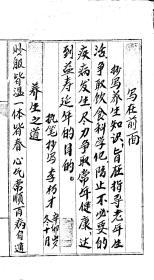 写在前面
抄写养生知识，旨在指导老年生
活，争取饮食科学化，防止不必要的
疾病发生，尽力争取常年健康，达
到益寿延年的目的。
执笔抄写 李 才
年 九月
养生之道
以服 皆温一体皆春心化常顺百病自遁